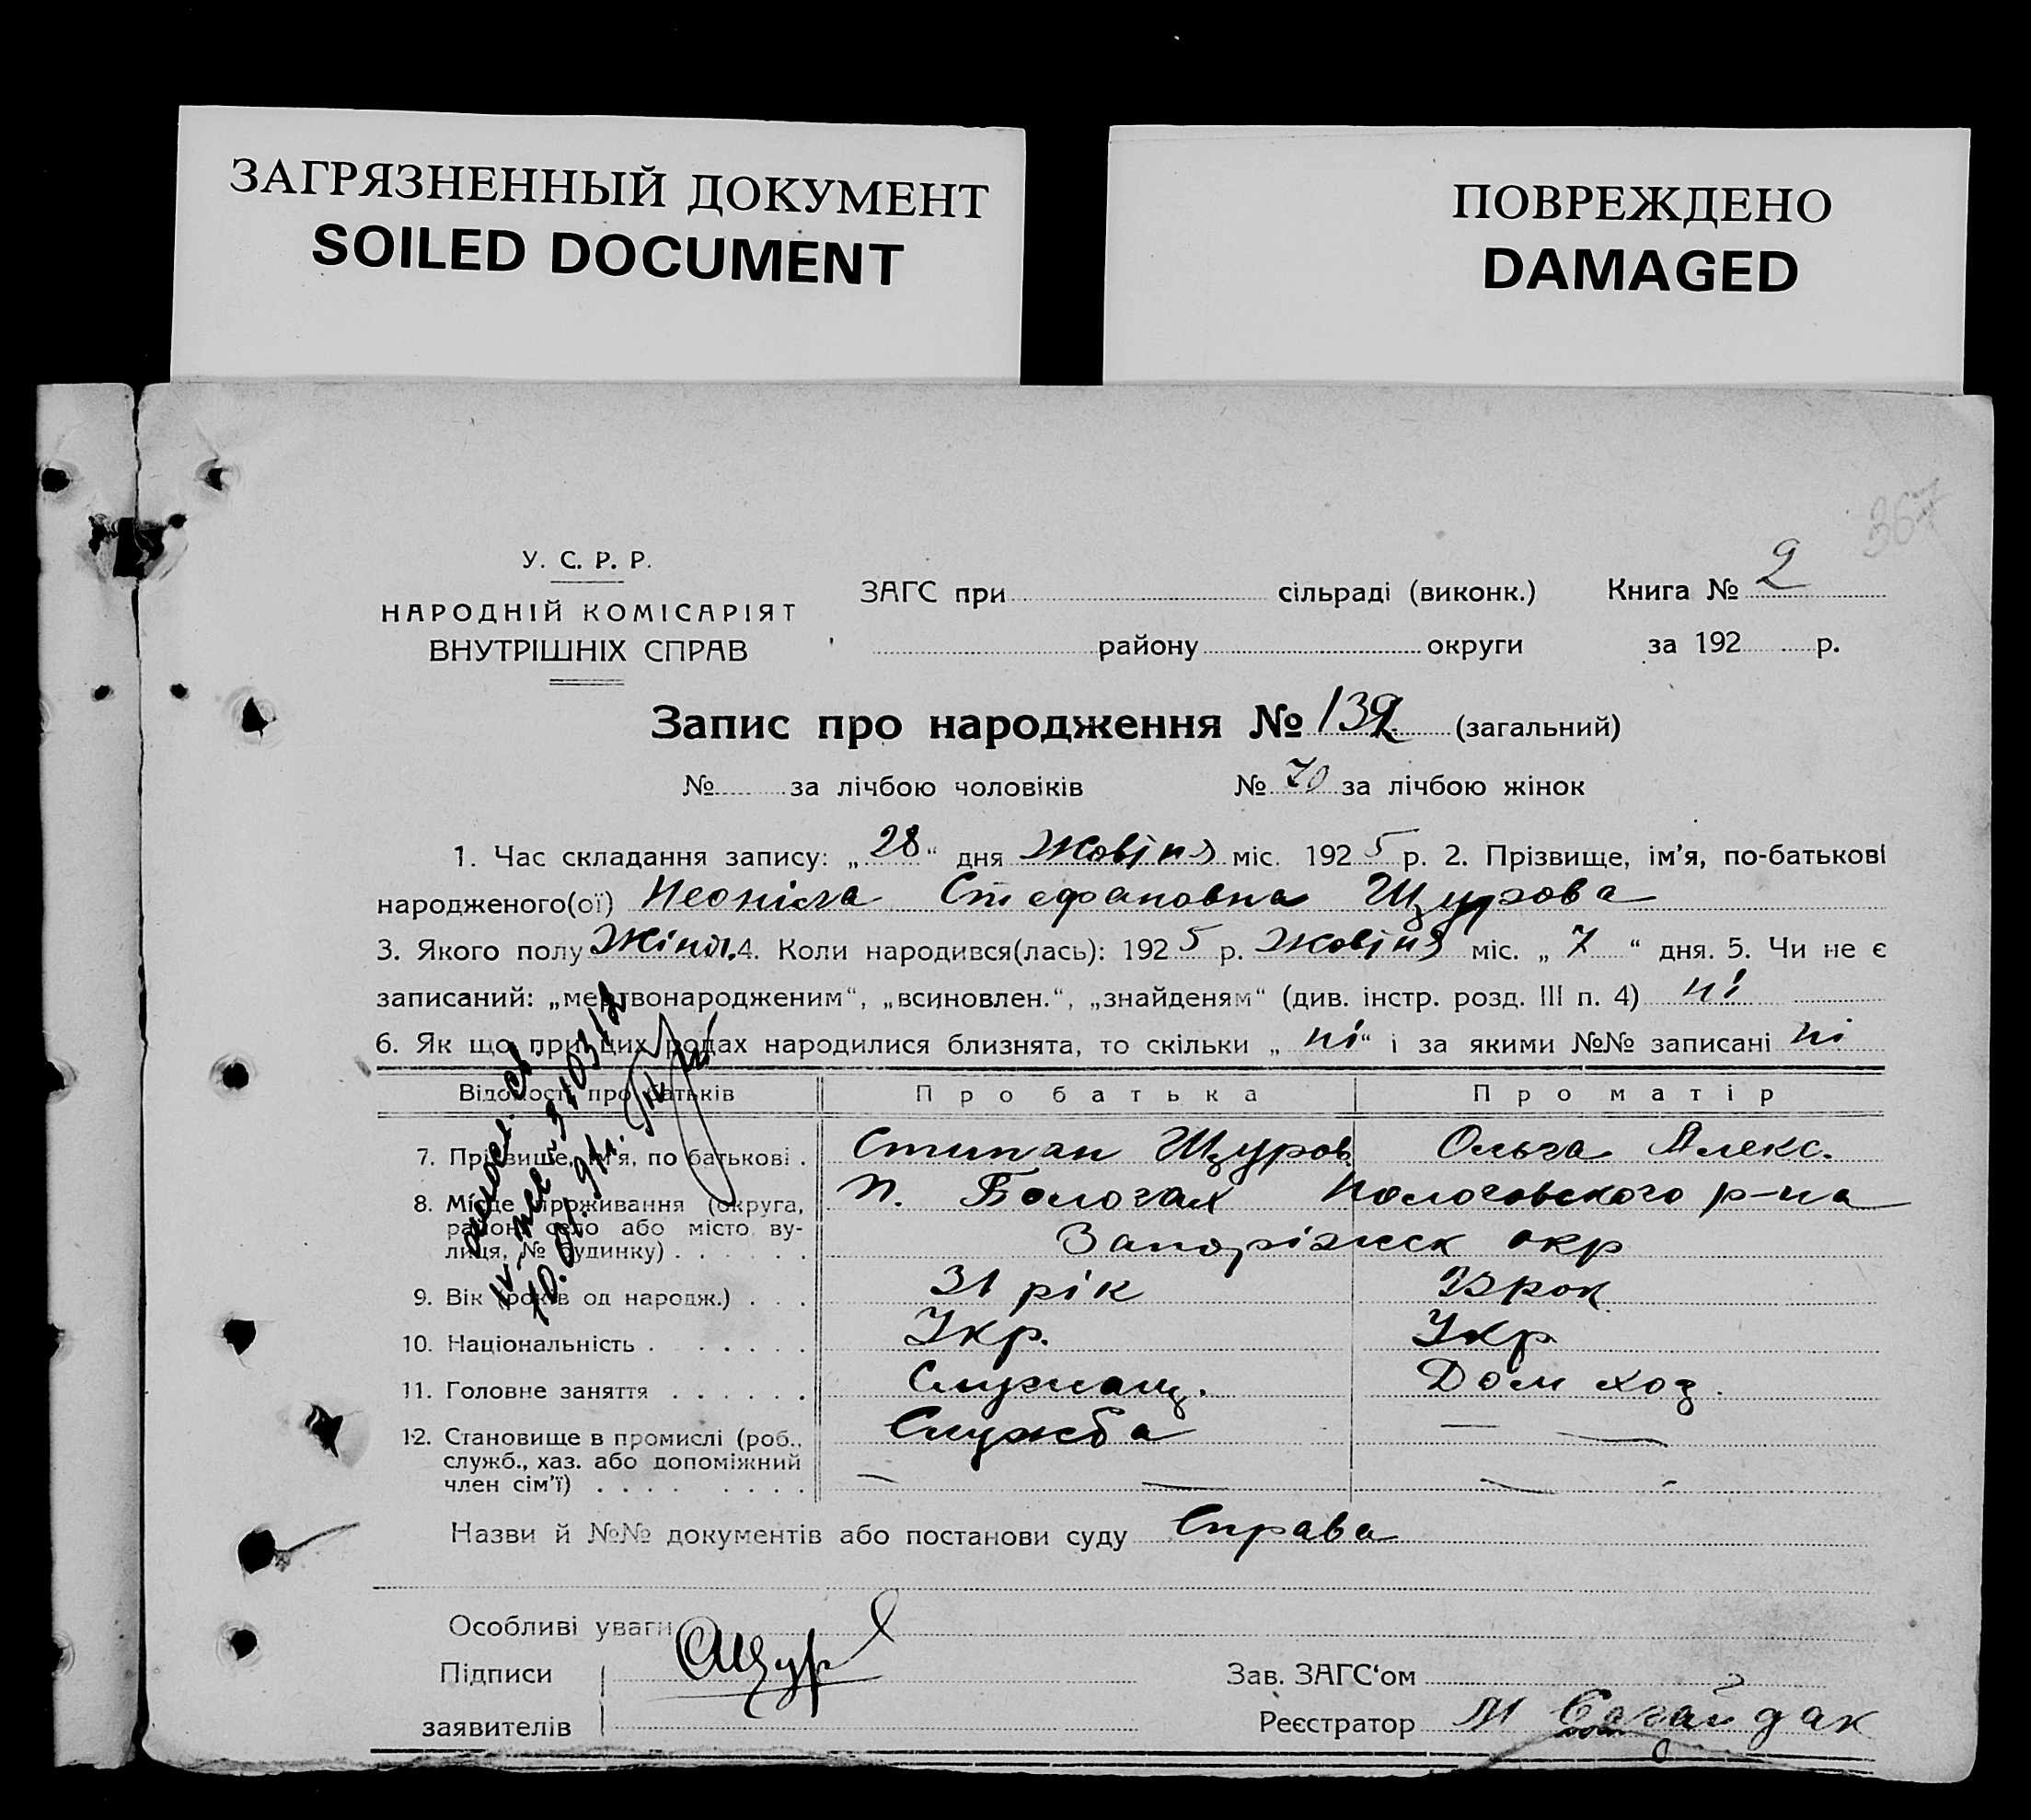 ЗАГРЯЗНЕННЫЙ ДОКУМЕНТ
SOILED DOCUMENT
ПОВРЕЖДЕНО
DAMAGED
367
У. С. Р. Р.
НАРОДНІЙ КОМІСАРІЯТ
ВНУТРІШНІХ СПРАВ
ЗАГС при сільраді (виконк.) Книга № 2
району округи за 192 р.
Запис про народження № 132 (загальний)
№ за лічбою чоловіків № 70 за лічбою жінок
1. Час складання запису: „28“ дня Жовтня міс. 1925 р. 2. Прізвище, ім'я, по-батькові
народженого(ої) Неоніла Стефановна Щурова
3. Якого полу Жіноч. 4. Коли народився(лась): 1925 р. Жовтня міс. „7“ дня. 5. Чи не є
записаний: „мертвонародженим“, „всиновлен.“, „знайденям“ (див. інстр. розд. III п. 4) ні
6. Як що при цих родах народилися близнята, то скільки „ні“ і за якими №№ записані ні
Відомості про батьків Про батька Про матір
7. Прізвище, ім'я, по батькові . Степан Щуров Ольга Алекс.
8. Місце проживання (округа, п. Пологах Пологовского р-на
район, село або місто, ву-
лиця, № будинку) . . . . . . Запоріжск окр
9. Вік (років од народж.) . . . 31 рік
10. Національність . . . . . . Укр. Укр
11. Головне заняття . . . . . . Служащ. Дом хоз.
12. Становище в промислі (роб., Служба —
служб., хаз. або допоміжний
член сім'ї) . . . . . . . . — — — —
Назви й №№ документів або постанови суду Справа
Особливі уваги
Підписи СЩур Зав. ЗАГС'ом
заявителів Реєстратор М Сагайдак